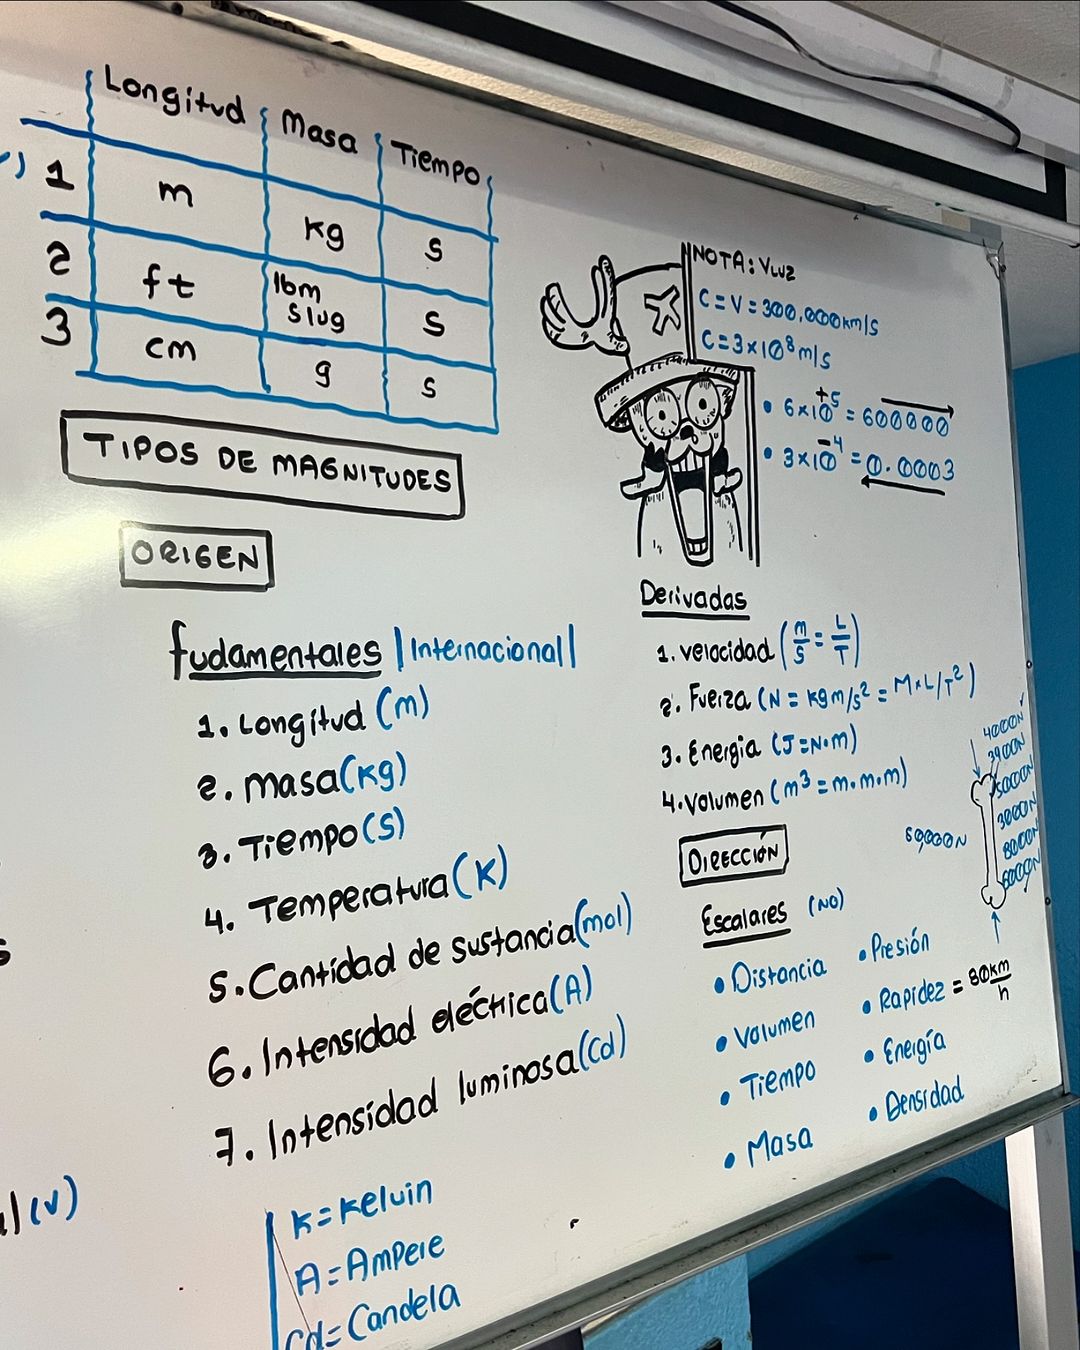 Longitud Masa Tiempo
1 m kg s
2 ft lbm slug s
3 cm g s
TIPOS DE MAGNITUDES
ORIGEN
fudamentales |Internacional|
1. Longitud (m)
2. masa(kg)
3. Tiempo(s)
4. Temperatura(K)
5. Cantidad de sustancia(mol)
6. Intensidad eléctrica(A)
7. Intensidad luminosa(cd)
K=Kelvin
A=Ampere
Cd=Candela
(v)
NOTA: VLUZ
C=V=300,000km/s
C=3x10⁸m/s
• 6x10⁺⁵ = 600000
• 3x10⁻⁴ = 0.0003
Derivadas
1. velocidad (m/s = L/T)
2. Fuerza (N = kg m/s² = M×L/T²)
3. Energia (J=N•m)
4. Volumen (m³ = m.m.m)
4000N
3900N
5000N
3000N
8000N
6000N
DIRECCIÓN
Escalares (NO)
• Distancia
• Volumen
• Tiempo
• Masa
• Presión
• Rapidez = 80km/h
• Energía
• Densidad